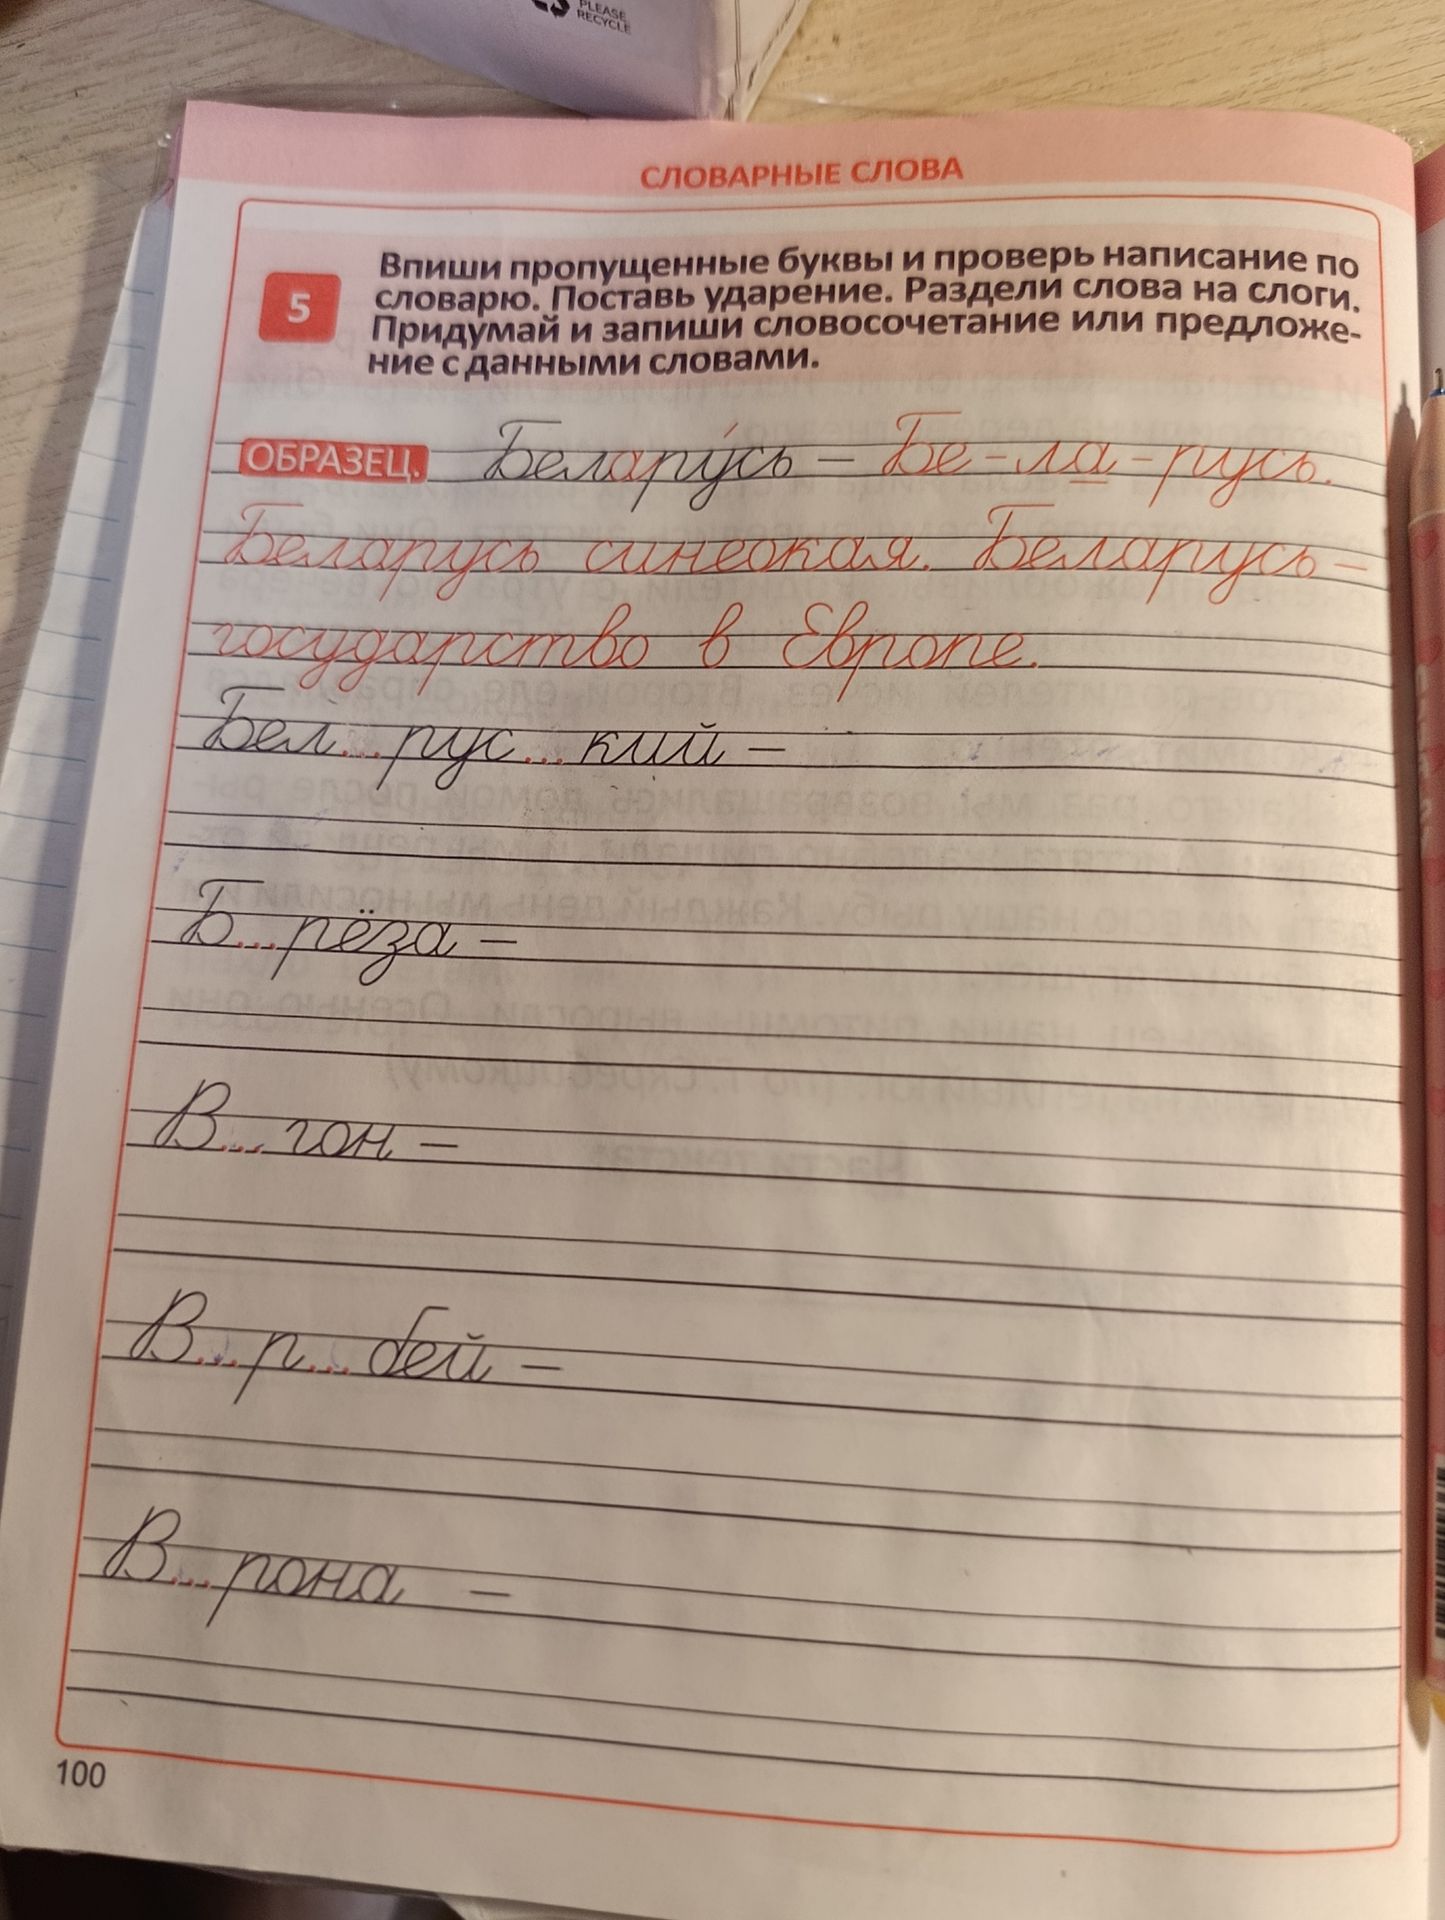 PLEASE
RECYCLE
СЛОВАРНЫЕ СЛОВА
5
Впиши пропущенные буквы и проверь написание по
словарю. Поставь ударение. Раздели слова на слоги.
Придумай и запиши словосочетание или предложе-
ние с данными словами.
ОБРАЗЕЦ. Белару́сь – Бе-ла-русь.
Беларусь синеокая. Беларусь –
государство в Европе.
Бел...рус...кий –
Б...рёза –
В...гон –
В...р...бей –
В...рона –
100